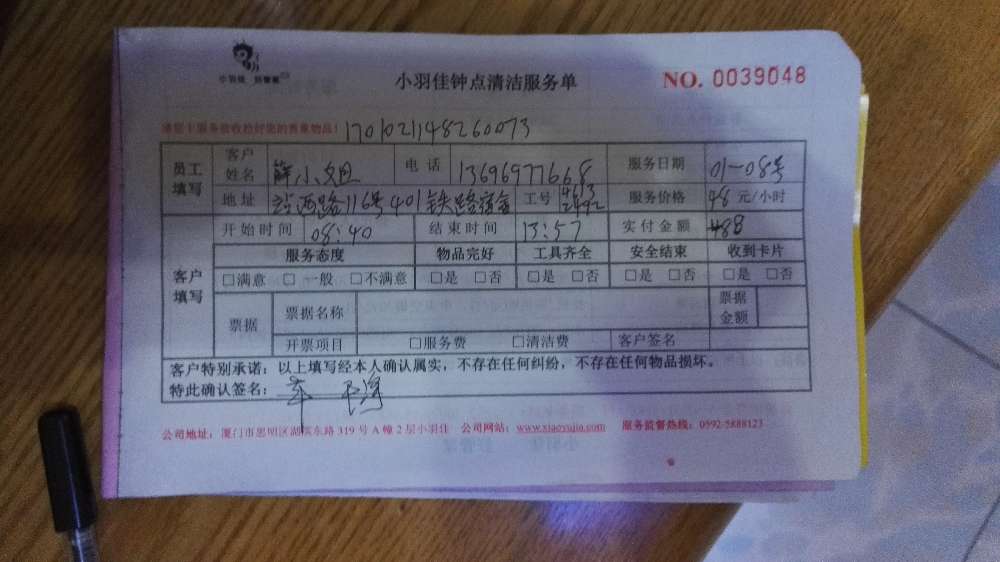 小羽佳
小羽佳钟点清洁服务单
NO. 0039048
1701021148260073
员工填写 客户姓名 薛小姐 电话 13696977668 服务日期 01-08号
地址 站西路116号401铁路宿舍 工号 服务价格 48 元/小时
开始时间 08:40 结束时间 13:57 实付金额
客户填写 服务态度 物品完好 工具齐全 安全结束 收到卡片
□满意 □一般 □不满意 □是 □否 □是 □否 □是 □否 □是 □否
票据 票据名称 票据金额
开票项目 □服务费 □清洁费 客户签名
客户特别承诺：以上填写经本人确认属实，不存在任何纠纷，不存在任何物品损坏。
特此确认签名：
公司地址：厦门市思明区湖滨东路 319 号 A 幢 2 层小羽佳 公司网站：www.xiaoyujia.com 服务监督热线：0592-5888123